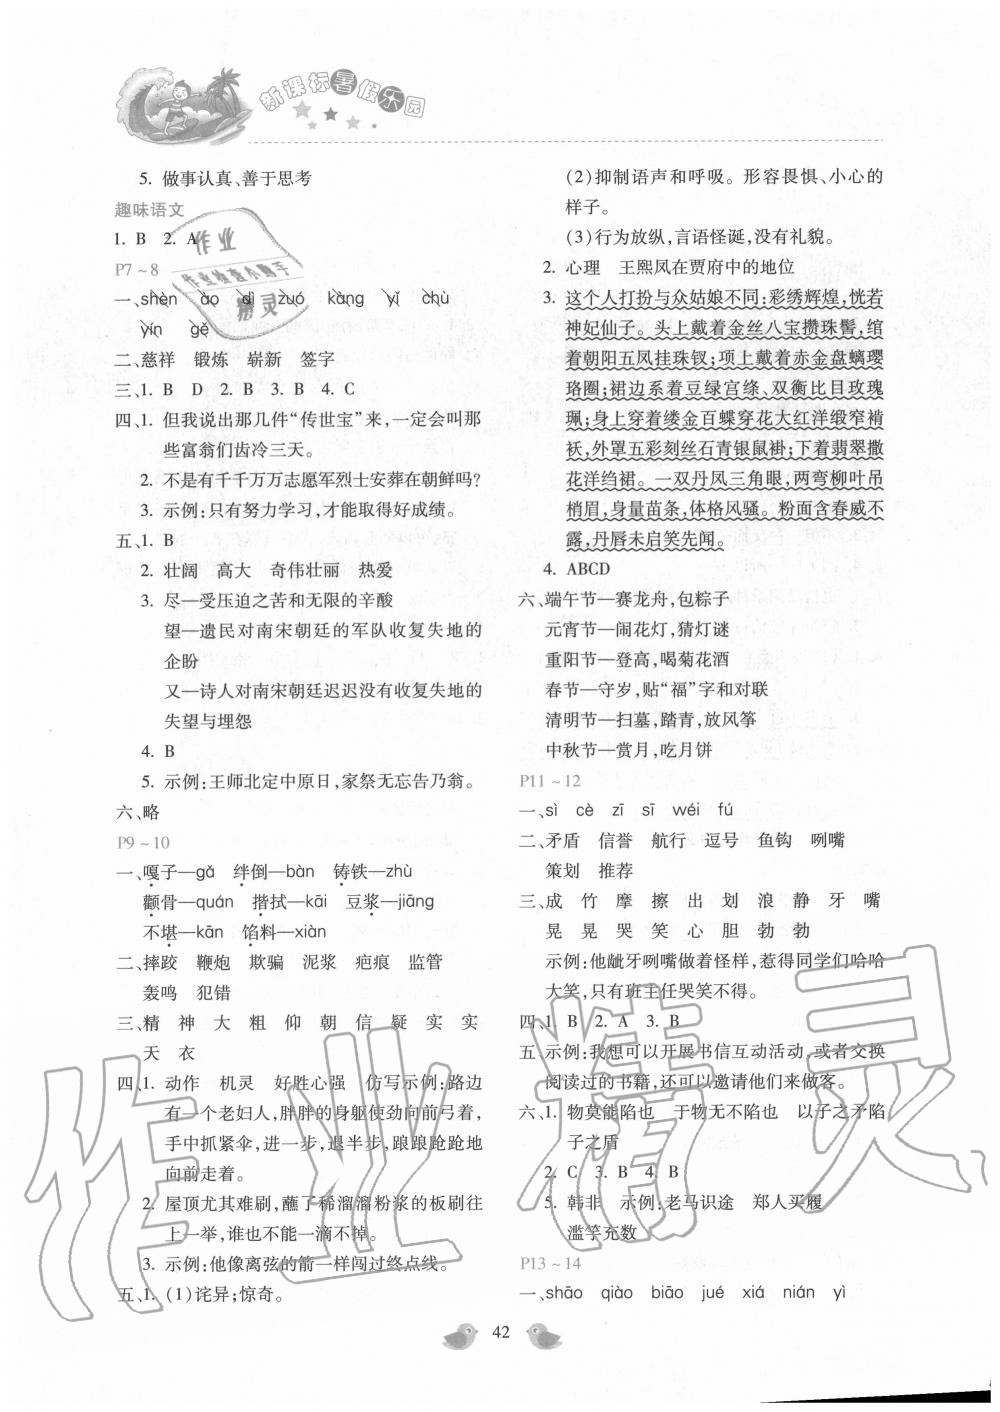 新课标暑假乐园
5. 做事认真、善于思考
趣味语文
1. B 2. A
P7～8
一、shèn āo dì zuó kàng yǐ chù
yín gě
二、慈祥 锻炼 崭新 签字
三、1. B D 2. B 3. B 4. C
四、1. 但我说出那几件“传世宝”来,一定会叫那
些富翁们齿冷三天。
2. 不是有千千万万志愿军烈士安葬在朝鲜吗?
3. 示例:只有努力学习,才能取得好成绩。
五、1. B
2. 壮阔 高大 奇伟壮丽 热爱
3. 尽—受压迫之苦和无限的辛酸
望—遗民对南宋朝廷的军队收复失地的
企盼
又—诗人对南宋朝廷迟迟没有收复失地的
失望与埋怨
4. B
5. 示例:王师北定中原日,家祭无忘告乃翁。
六、略
P9～10
一、嘎子—gǎ 绊倒—bàn 铸铁—zhù
颧骨—quán 揩拭—kāi 豆浆—jiāng
不堪—kān 馅料—xiàn
二、摔跤 鞭炮 欺骗 泥浆 疤痕 监管
轰鸣 犯错
三、精 神 大 粗 仰 朝 信 疑 实 实
天 衣
四、1. 动作 机灵 好胜心强 仿写示例:路边
有一个老妇人,胖胖的身躯使劲向前弓着,
手中抓紧伞,进一步,退半步,踉踉跄跄地
向前走着。
2. 屋顶尤其难刷,蘸了稀溜溜粉浆的板刷往
上一举,谁也不能一滴不掉。
3. 示例:他像离弦的箭一样闯过终点线。
五、1. (1)诧异;惊奇。
(2)抑制语声和呼吸。形容畏惧、小心的
样子。
(3)行为放纵,言语怪诞,没有礼貌。
2. 心理 王熙凤在贾府中的地位
3. 这个人打扮与众姑娘不同:彩绣辉煌,恍若
神妃仙子。头上戴着金丝八宝攒珠髻,绾
着朝阳五凤挂珠钗;项上戴着赤金盘螭璎
珞圈;裙边系着豆绿宫绦、双衡比目玫瑰
珮;身上穿着缕金百蝶穿花大红洋缎窄裉
袄,外罩五彩刻丝石青银鼠褂;下着翡翠撒
花洋绉裙。一双丹凤三角眼,两弯柳叶吊
梢眉,身量苗条,体格风骚。粉面含春威不
露,丹唇未启笑先闻。
4. ABCD
六、端午节—赛龙舟,包粽子
元宵节—闹花灯,猜灯谜
重阳节—登高,喝菊花酒
春节—守岁,贴“福”字和对联
清明节—扫墓,踏青,放风筝
中秋节—赏月,吃月饼
P11～12
一、sì cè zī sī wéi fú
二、矛盾 信誉 航行 逗号 鱼钩 咧嘴
策划 推荐
三、成 竹 摩 擦 出 划 浪 静 牙 嘴
晃 晃 哭 笑 心 胆 勃 勃
示例:他龇牙咧嘴做着怪样,惹得同学们哈哈
大笑,只有班主任哭笑不得。
四、1. B 2. A 3. B
五、示例:我想可以开展书信互动活动,或者交换
阅读过的书籍,还可以邀请他们来做客。
六、1. 物莫能陷也 于物无不陷也 以子之矛陷
子之盾
2. C 3. B 4. B
5. 韩非 示例:老马识途 郑人买履
滥竽充数
P13～14
一、shāo qiào biāo jué xiá nián yì
42
作业
作业检查小助手
精灵
作业精灵